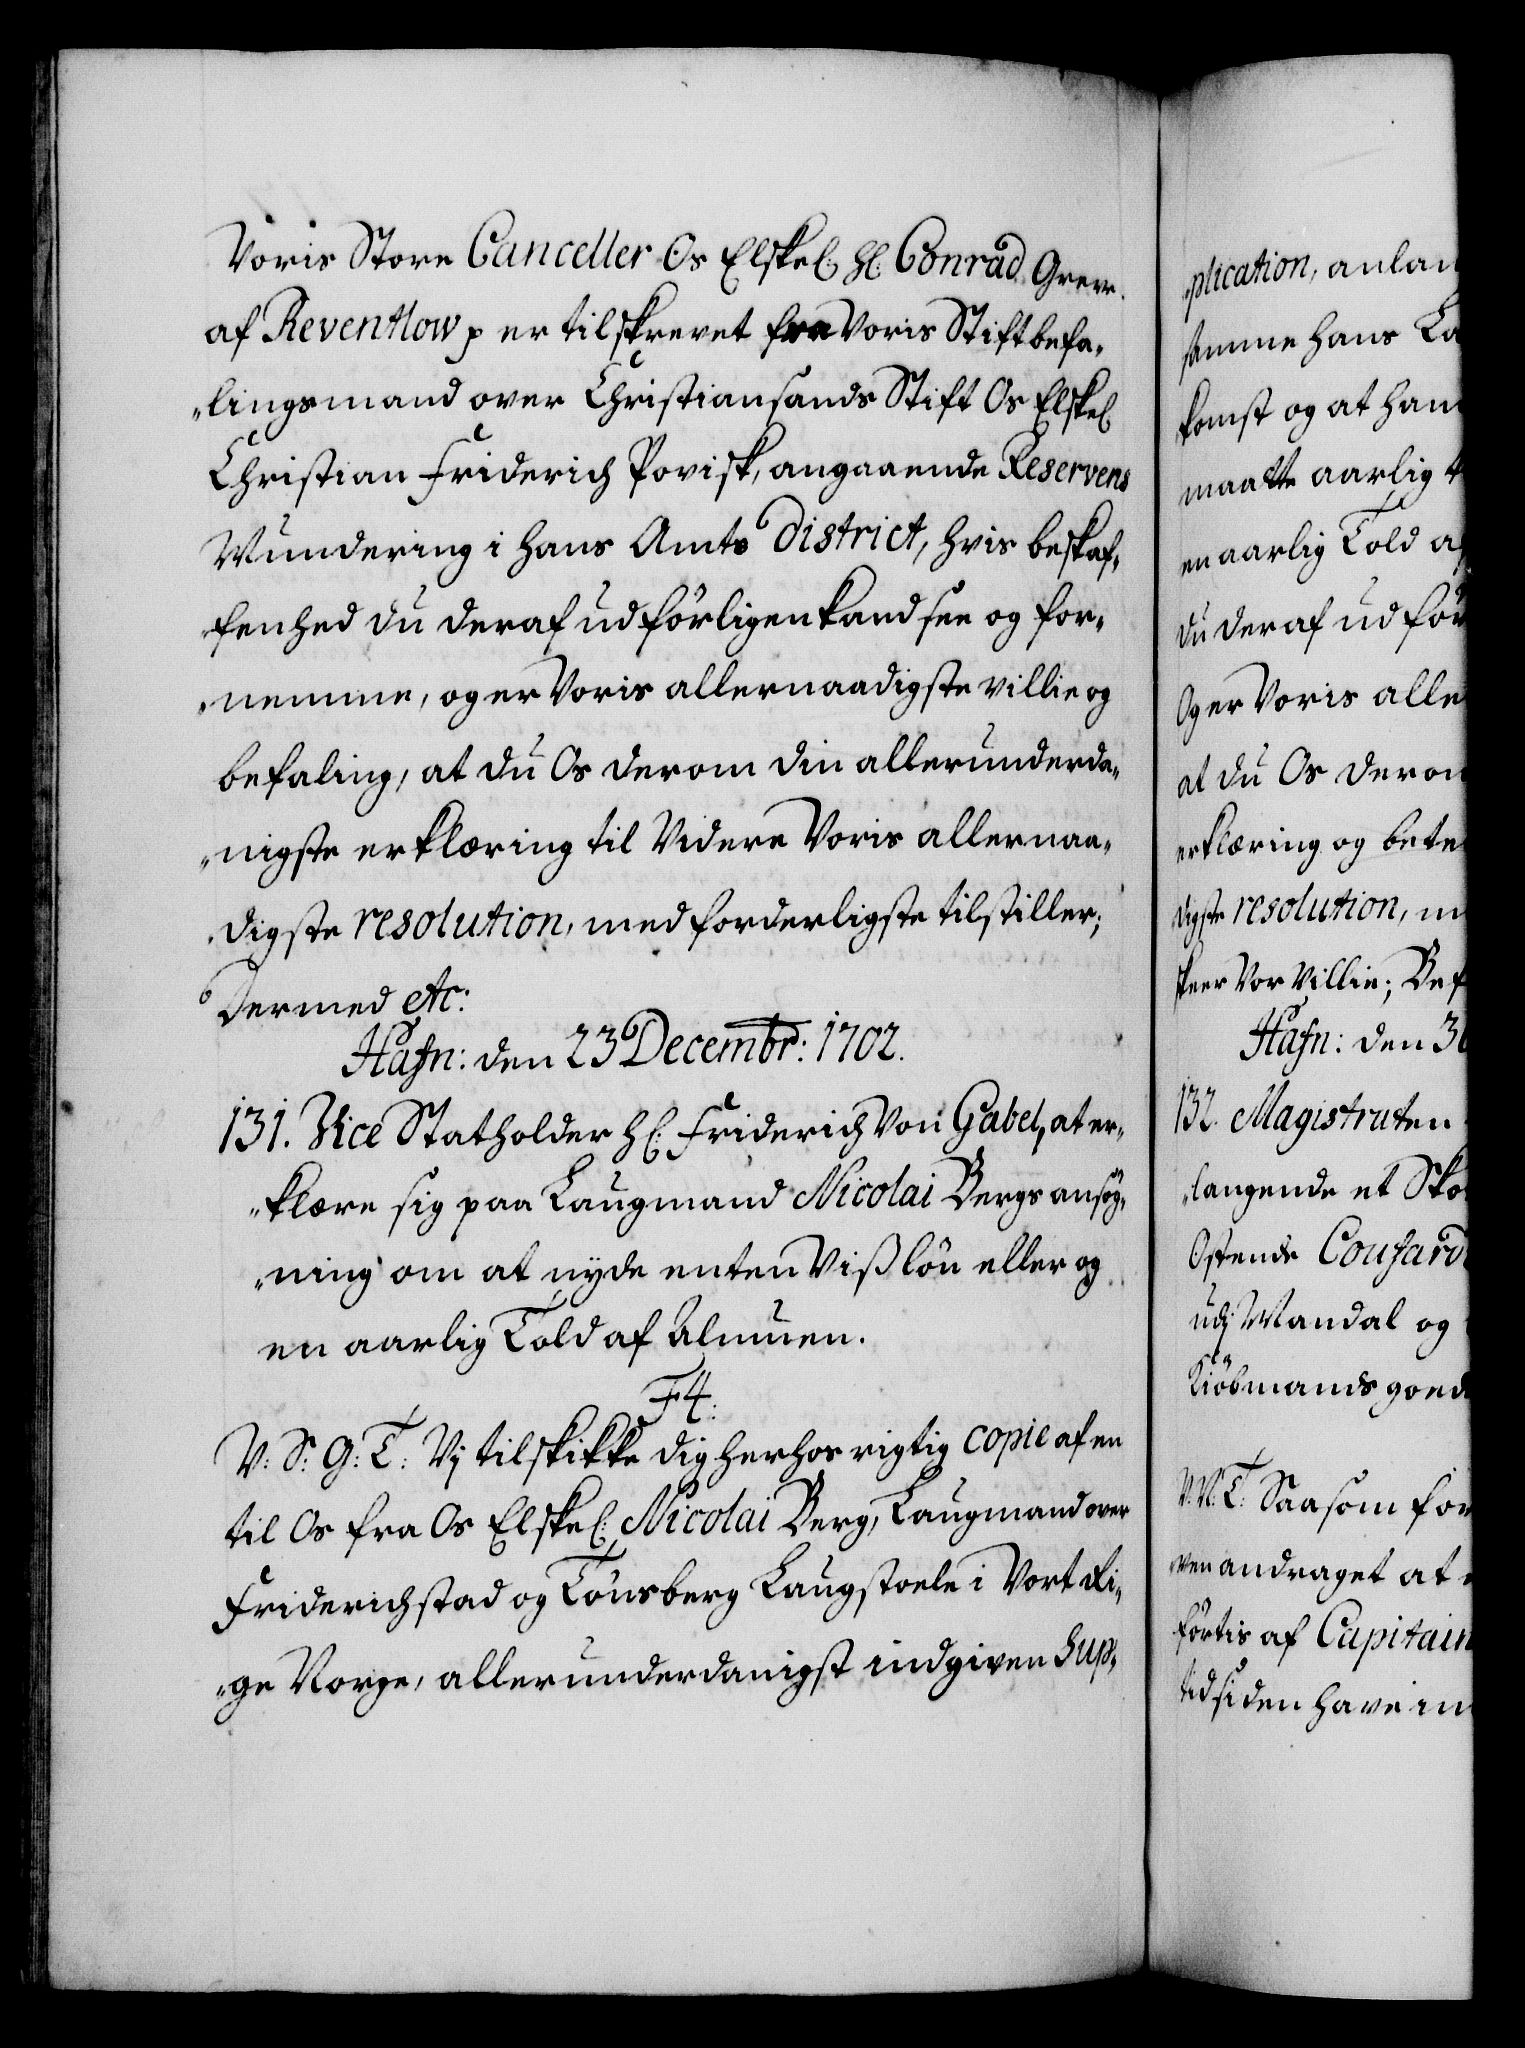 Voris Store Canceller Os Elskel: Hl: Conrad Grev
af Reventlow p er tilskrevet fra Voris Stiftbefa„
„lingsmand over Christiansands Stift Os Elskel
Christian Friderich Povisk, angaaende Reservens
Mundering i hans Amts District, hvis beskaf„
fenhed du deraf udförligen kand see og for„
„nemme, og er Voris allernaadigste villie og
befaling, at du Os derom din allerunderda„
„nigste erklæring til Videre Voris allernaa„
„digste resolution, med forderligste tilstiller;
Dermed etc:
Hafn: den 23 Decembr: 1702.
131. Vice Statholder Hl: Friderich Von Gabel, at er„
„klære sig paa Laugmand Nicolai Bergs ansög„
„ning om at nyde enten Viß lön eller og
en aarlig Told af Almuen.
F4:
V: S: G: T: Vj tilskikke dig herhos rigtig copie af en
til Os fra Os Elskel: Nicolai Berg, Laugmand over
Friderichstad og Tönsberg Laugstoele i Vort Ri„
„ge Norge, allerunderdanigst indgiven Sup„
„plication, anlan
samme hans La
komst og at han
maatte aarlig
en aarlig Told af
du deraf udför
Og er Voris alle
at du Os derom
erklæring og bete
digste resolution, m
skeer Vor Villie; Bef
Hafn: den 30
132. Magistraten
„langende et Sko
Ostende
udj Mandal og
Kiöbmands goed
V: N: T: Saasom for
ven andraget at
förtis af Capitain
tid siden have in